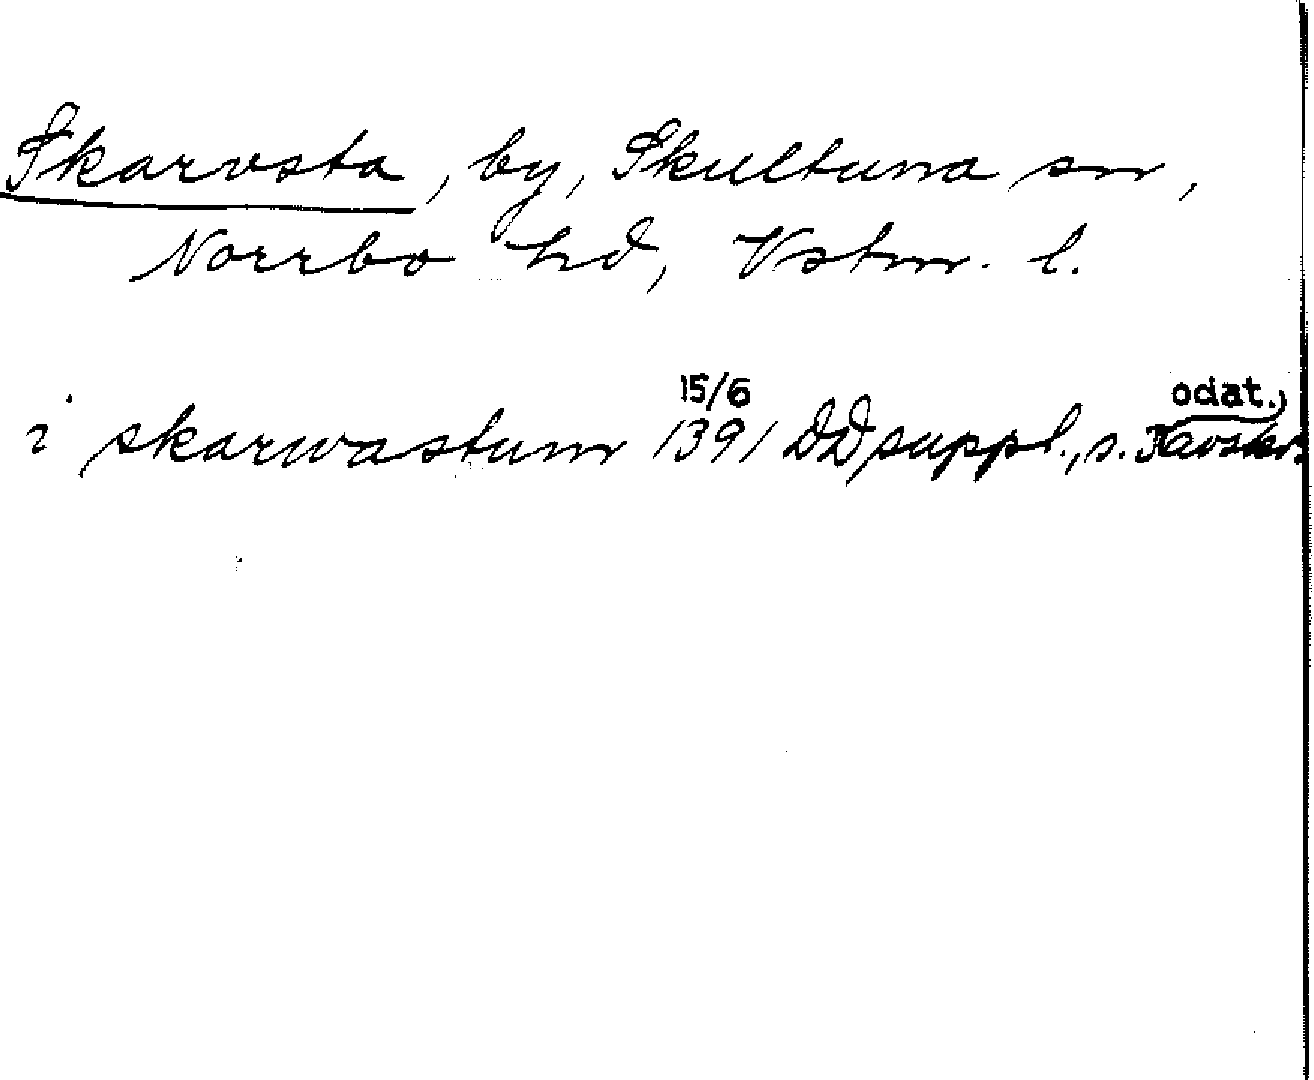 Skarvsta, by, Skultuna sn,
Norrbo hd, Vstm. l.
15/6 odat.)
i skarwastum 1391 DD suppl., s.